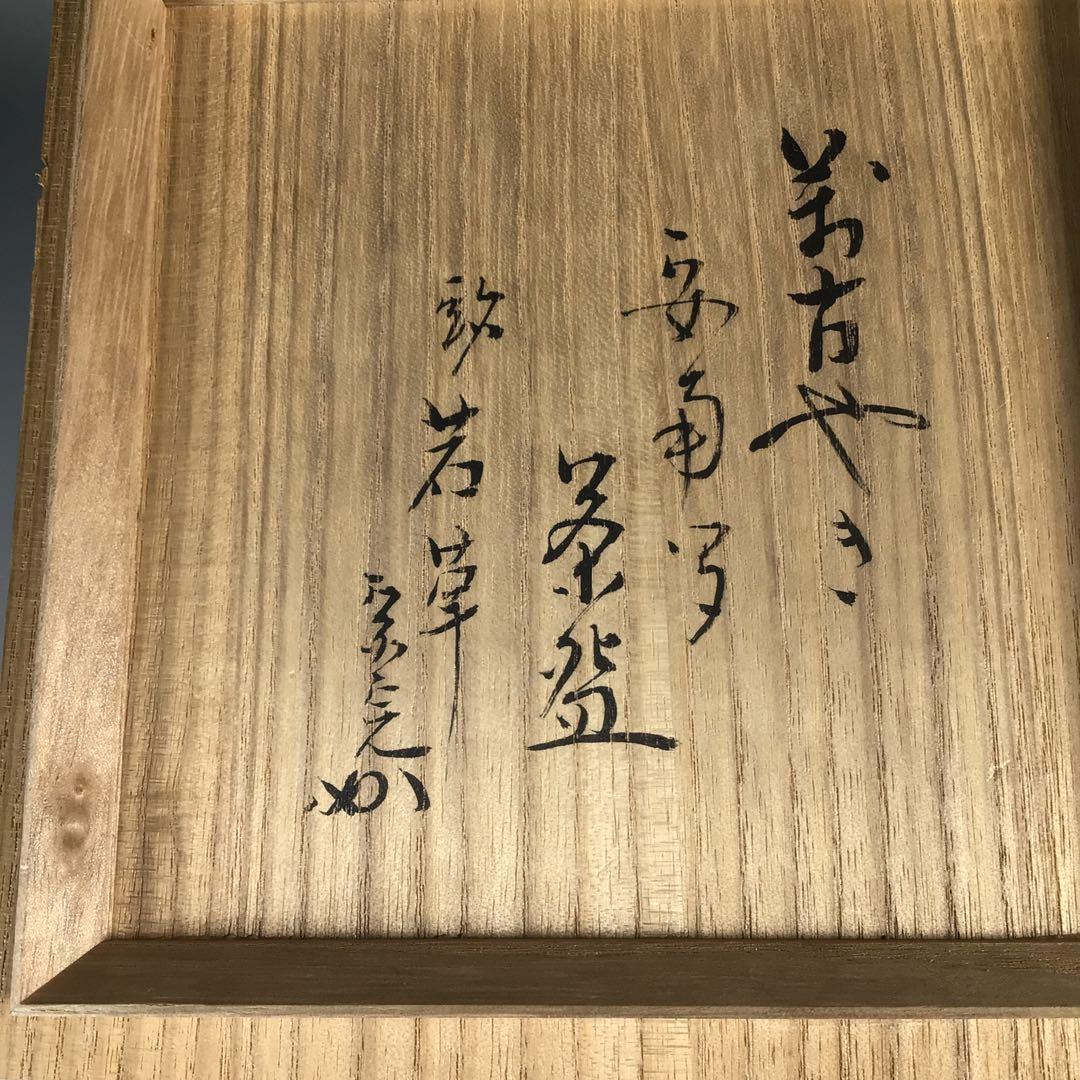 萬古やき
安南写
茶盌
銘 若草